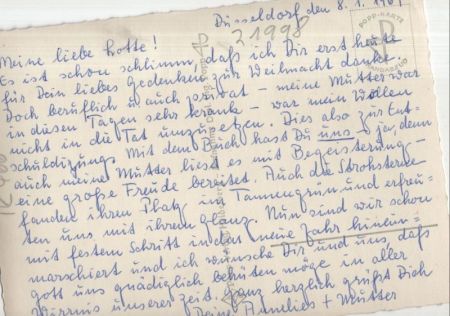 Düsseldorf den 8. 1. 1961
Meine liebe Lotte!
Es ist schon schlimm, daß ich Dir erst heute
für Dein liebes Gedenken zur Weihnacht danke.
Doch beruflich u. auch privat – meine Mutter war
in diesen Tagen sehr krank – war mein Wollen
nicht in die Tat umzusetzen. Dies also zur Ent-
schuldigung. Mit dem Buch hast Du uns, ja, denn
auch meine Mutter liest es mit Begeisterung
eine große Freude bereitet. Auch die Strohsterne
fanden ihren Platz im Tannengrün und erfreu-
ten uns mit ihrem Glanz. Nun sind wir schon
mit festem Schritt in das neue Jahr hinein-
marschiert und ich wünsche Dir und uns, daß
Gott uns gnädiglich behüten möge in aller
Wirrnis unserer Zeit. Ganz herzlich grüßt Dich
Deine Annelies + Mutter
21998
POPP-KARTE